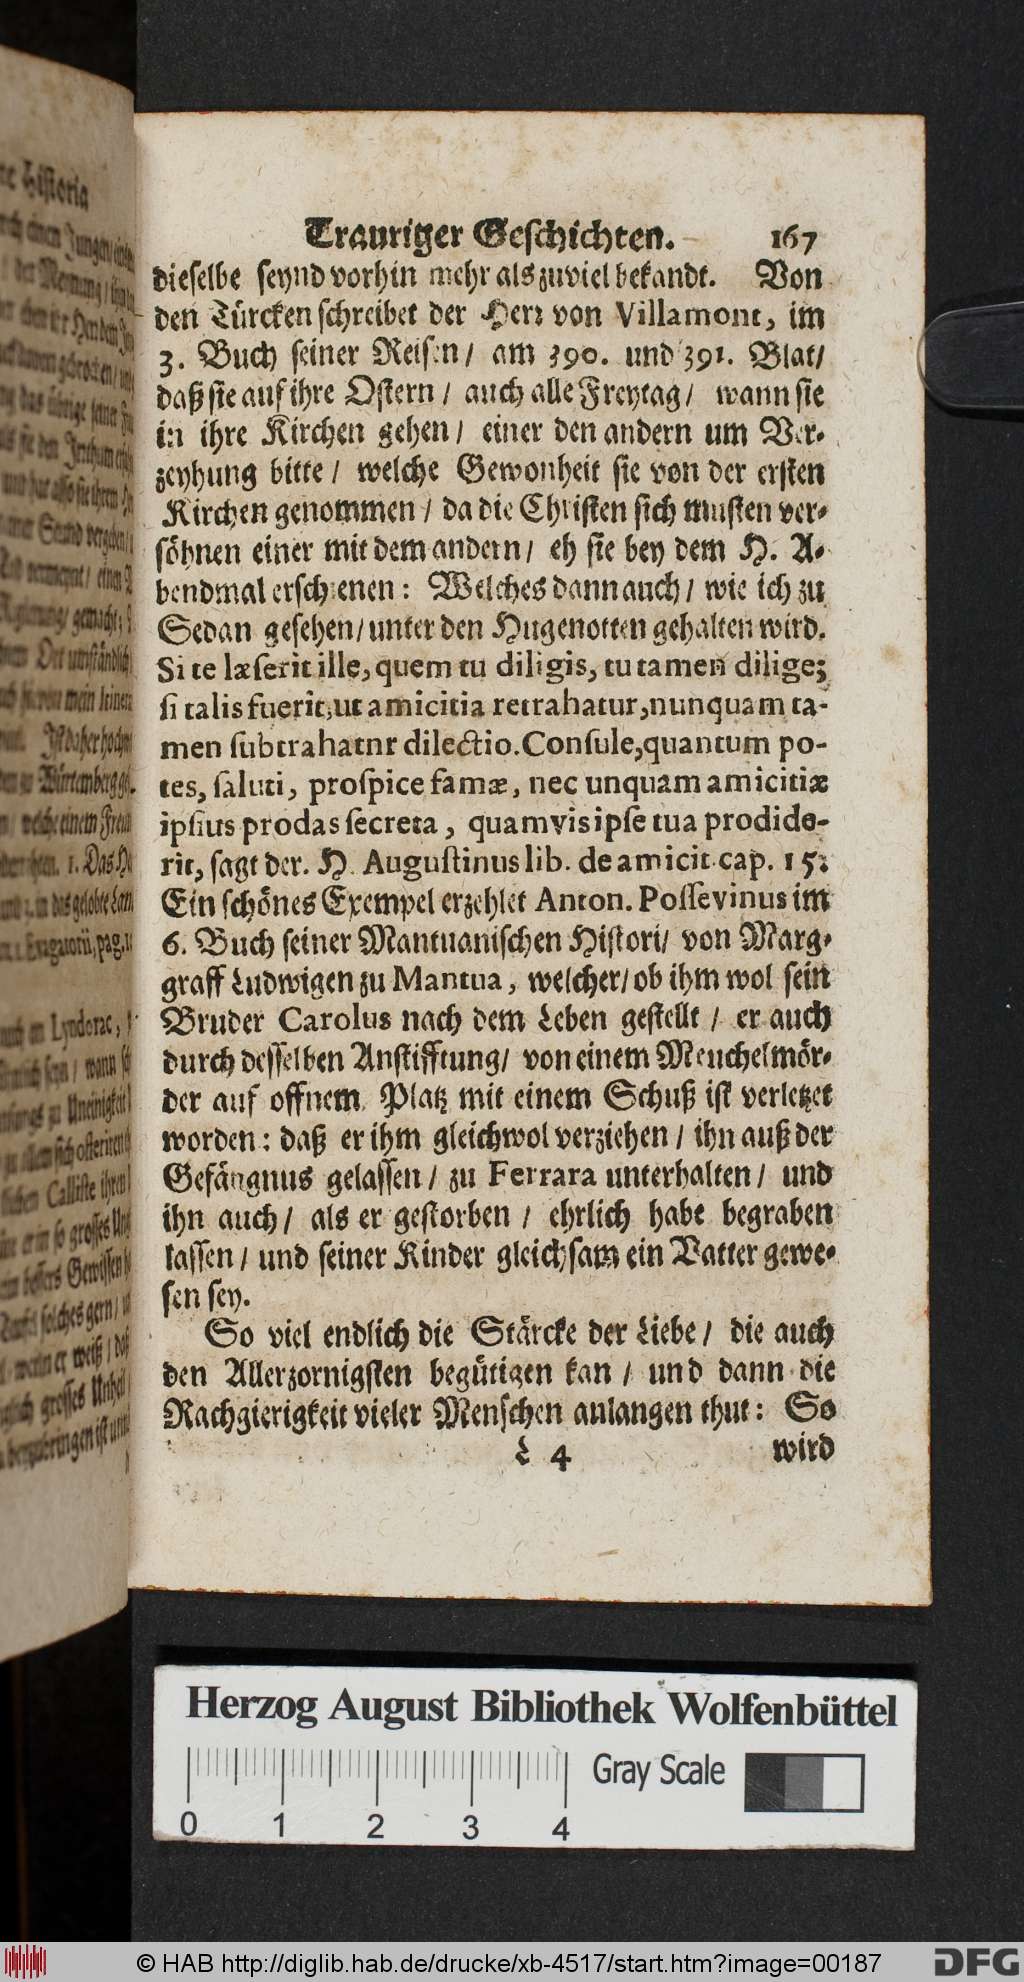 Trauriger Geschichten. 167
dieselbe seynd vorhin mehr als zuviel bekandt. Von
den Türcken schreibet der Herr von Villamont, im
3. Buch seiner Reisen / am 390. und 391. Blat /
daß sie auf ihre Ostern / auch alle Freytag / wann sie
in ihre Kirchen gehen / einer den andern um Ver-
zeyhung bitte / welche Gewonheit sie von der ersten
Kirchen genommen / da die Christen sich musten ver-
söhnen einer mit dem andern / eh sie bey dem H. A-
bendmal erschienen: Welches dann auch / wie ich zu
Sedan gesehen / unter den Hugenotten gehalten wird.
Si te læserit ille, quem tu diligis, tu tamen dilige;
si talis fuerit, ut amicitia retrahatur, nunquam ta-
men subtrahatnr dilectio. Consule, quantum po-
tes, saluti, prospice famæ, nec unquam amicitiæ
ipsius prodas secreta, quamvis ipse tua prodide-
rit, sagt der. H. Augustinus lib. de amicit. cap. 15.
Ein schönes Exempel erzehlet Anton. Possevinus im
6. Buch seiner Mantuanischen Histori / von Marg-
graff Ludwigen zu Mantua, welcher / ob ihm wol sein
Bruder Carolus nach dem Leben gestellt / er auch
durch desselben Anstifftung / von einem Meuchelmör-
der auf offnem Platz mit einem Schuß ist verletzet
worden: daß er ihm gleichwol verziehen / ihn auß der
Gefängnus gelassen / zu Ferrara unterhalten / und
ihn auch / als er gestorben / ehrlich habe begraben
lassen / und seiner Kinder gleichsam ein Vatter gewe-
sen sey.
So viel endlich die Stärcke der Liebe / die auch
den Allerzornigsten begütigen kan / und dann die
Rachgierigkeit vieler Menschen anlangen thut: So
L 4 wird
Herzog August Bibliothek Wolfenbüttel
Gray Scale
0 1 2 3 4
© HAB http://diglib.hab.de/drucke/xb-4517/start.htm?image=00187
DFG